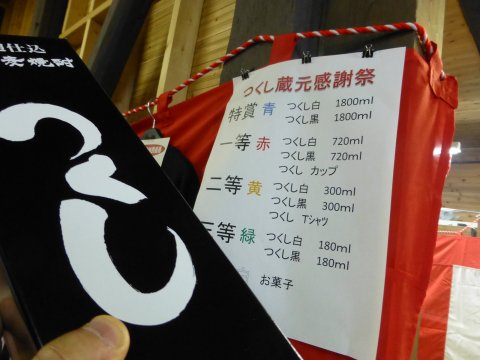 仕込
麦焼酎
つくし
つくし蔵元感謝祭
特賞 青 つくし白 1800ml
つくし黒 1800ml
一等 赤 つくし白 720ml
つくし黒 720ml
つくし カップ
二等 黄 つくし白 300ml
つくし黒 300ml
つくし Tシャツ
三等 緑 つくし白 180ml
つくし黒 180ml
白 お菓子